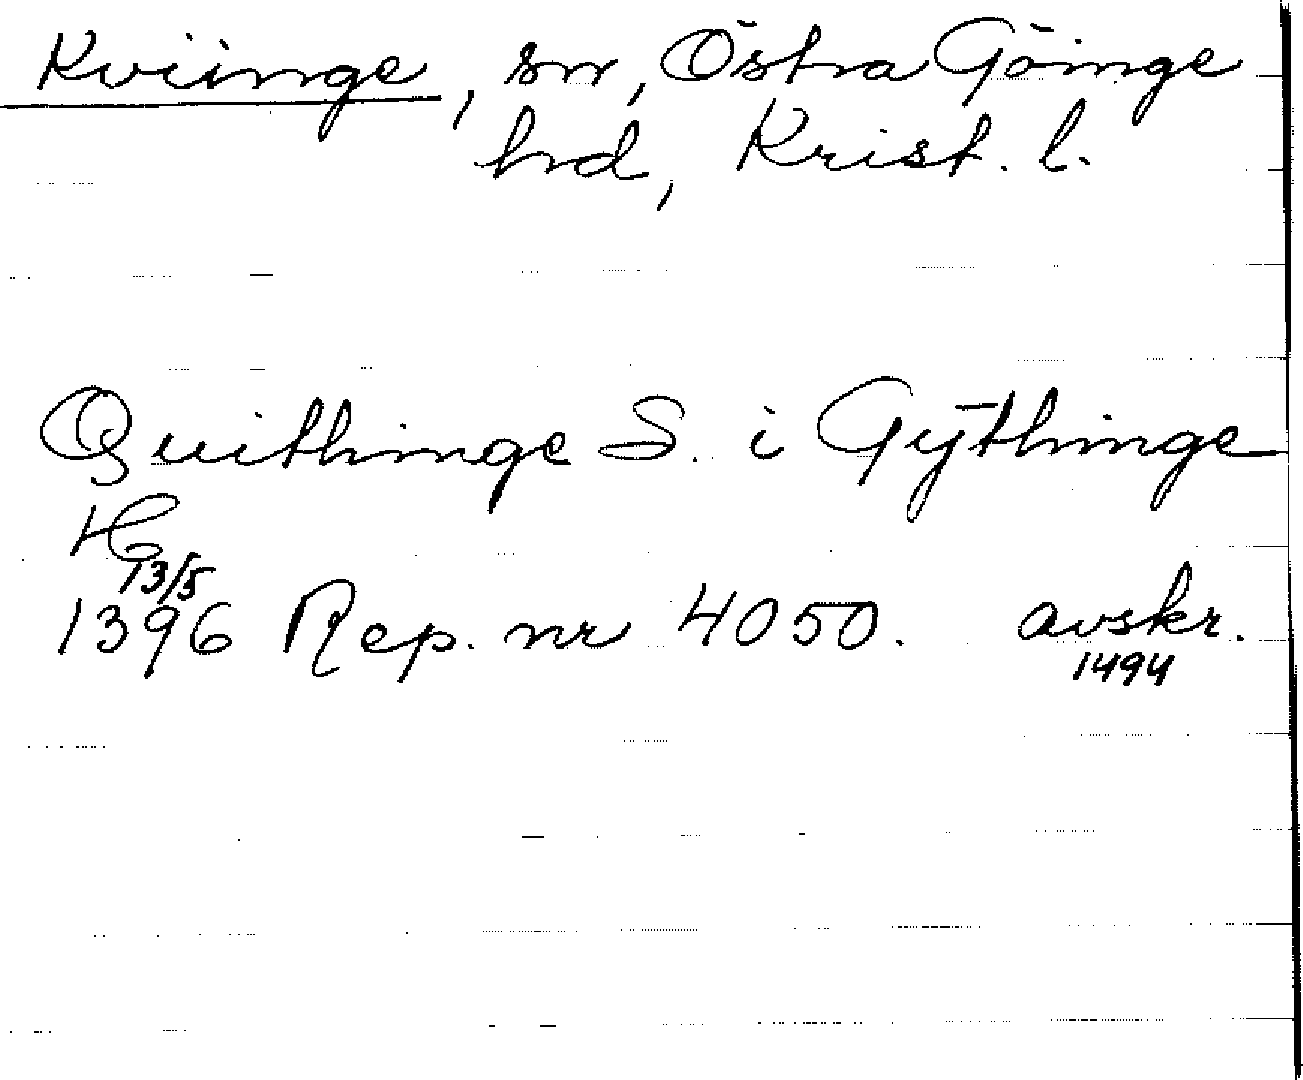 Kviinge, sn, Östra Göinge
hd, Krist. l.
Quithinge S. i Gÿthinge
H
13/5
1396 Rep. nr 4050. avskr.
1494